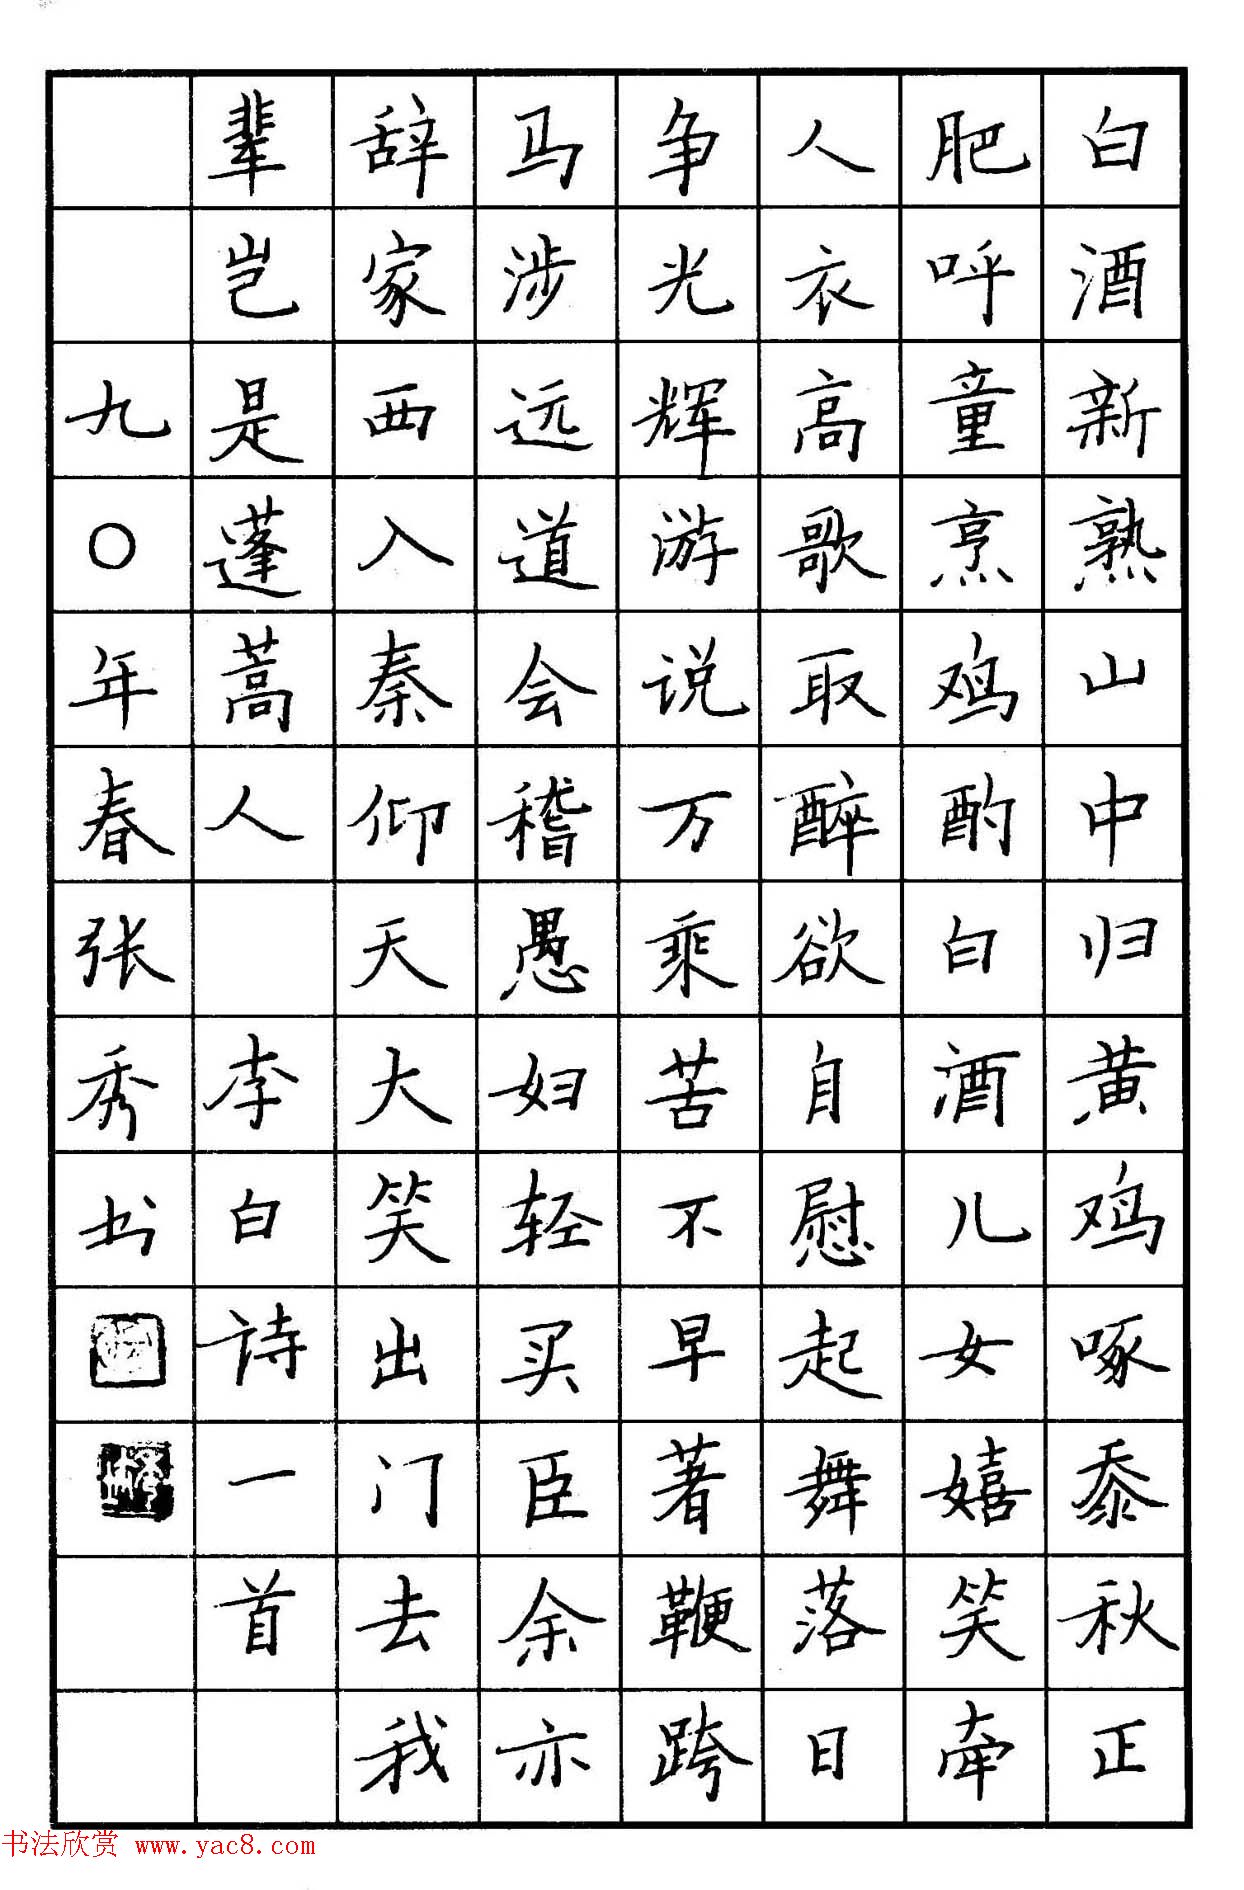 白酒新熟山中归黄鸡啄黍秋正
肥呼童烹鸡酌白酒儿女嬉笑牵
人衣高歌取醉欲自慰起舞落日
争光辉游说万乘苦不早著鞭跨
马涉远道会稽愚妇轻买臣余亦
辞家西入秦仰天大笑出门去我
辈岂是蓬蒿人 李白诗一首
九〇年春张秀书
书法欣赏 www.yac8.com